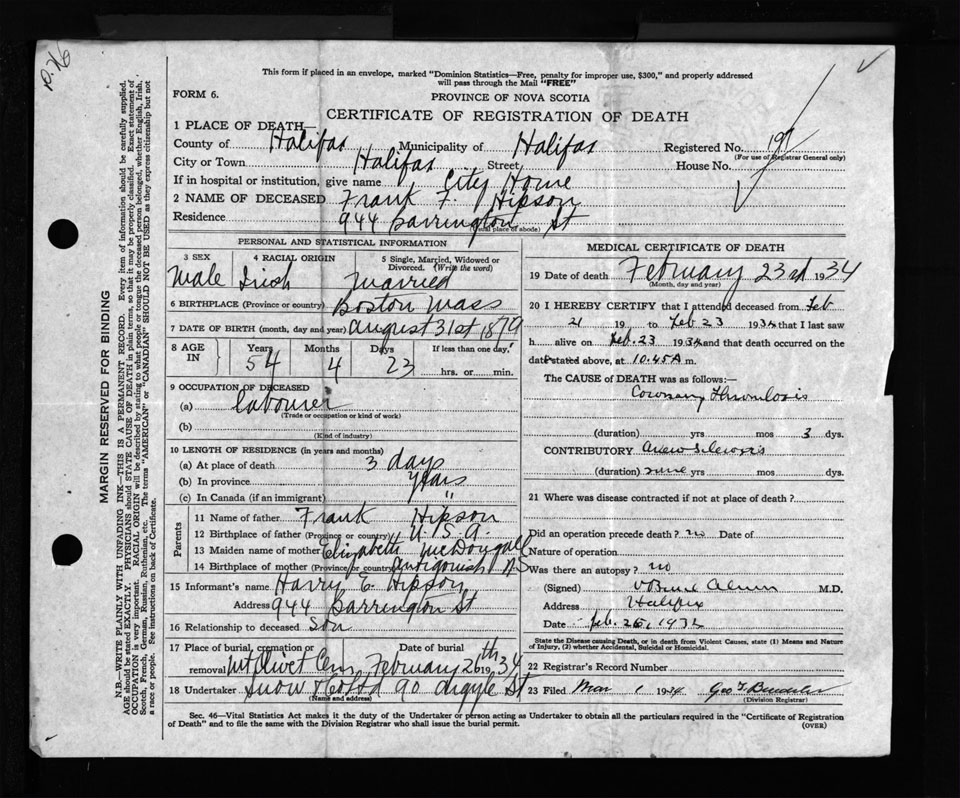 This form if placed in an envelope, marked "Dominion Statistics—Free, penalty for improper use, $300," and properly addressed
will pass through the Mail "FREE"
FORM 6.
PROVINCE OF NOVA SCOTIA
CERTIFICATE OF REGISTRATION OF DEATH
1 PLACE OF DEATH—
County of Halifax Municipality of Halifax Registered No. 197
(For use of Registrar General only)
City or Town Halifax Street House No.
If in hospital or institution, give name City Home
2 NAME OF DECEASED Frank F. Hipson
Residence 944 Barrington St
(usual place of abode)
PERSONAL AND STATISTICAL INFORMATION
3 SEX 4 RACIAL ORIGIN 5 Single, Married, Widowed or Divorced. (Write the word)
Male Irish Married
6 BIRTHPLACE (Province or country) Boston Mass
7 DATE OF BIRTH (month, day and year) August 31st 1879
8 AGE IN Years Months Days If less than one day,
54 4 23 hrs. or min.
9 OCCUPATION OF DECEASED
(a) labourer
(Trade or occupation or kind of work)
(b)
(Kind of industry)
10 LENGTH OF RESIDENCE (in years and months)
(a) At place of death 3 days
(b) In province Years
(c) In Canada (if an immigrant) "
Parents
11 Name of father Frank Hipson
12 Birthplace of father (Province or country) U.S.A.
13 Maiden name of mother Elizabeth McDougall
14 Birthplace of mother (Province or country) Antigonish N.S
15 Informant's name Harry E Hipson
Address 944 Barrington St
16 Relationship to deceased Son
17 Place of burial, cremation or removal Mt Olivet Cem Date of burial February 26th 1934
18 Undertaker Snow & Co Ltd 90 Argyle St
(Name and address)
MEDICAL CERTIFICATE OF DEATH
19 Date of death February 23rd 1934
(Month, day and year)
20 I HEREBY CERTIFY that I attended deceased from Feb
21 19 to Feb 23 1934 that I last saw
h alive on Feb. 23 1934 and that death occurred on the
date stated above, at 10.45 A m.
The CAUSE of DEATH was as follows:—
Coronary Thrombosis
(duration) yrs mos 3 dys.
CONTRIBUTORY
(duration) yrs mos dys.
21 Where was disease contracted if not at place of death?
Did an operation precede death? no Date of
Nature of operation
Was there an autopsy? no
(Signed) M.D.
Address Halifax
Date Feb. 26, 1934
State the Disease causing Death, or in death from Violent Causes, state (1) Means and Nature
of Injury, (2) whether Accidental, Suicidal or Homicidal.
22 Registrar's Record Number
23 Filed Mar 1 1934 Geo
(Division Registrar)
Sec. 46—Vital Statistics Act makes it the duty of the Undertaker or person acting as Undertaker to obtain all the particulars required in the "Certificate of Registration
of Death" and to file the same with the Division Registrar who shall issue the burial permit.
(OVER)
MARGIN RESERVED FOR BINDING
N.B.—WRITE PLAINLY WITH UNFADING INK—THIS IS A PERMANENT RECORD. Every item of information should be carefully supplied.
AGE should be stated EXACTLY. PHYSICIANS should STATE CAUSE OF DEATH in plain terms, so that it may be properly classified. Exact statement of
OCCUPATION is very important. RACIAL ORIGIN will be described by stating to what people or tongue the deceased person belonged, whether English, Irish,
Scotch, French, German, Russian, Ruthenian, etc. The terms "AMERICAN" or "CANADIAN" SHOULD NOT BE USED as they express citizenship but not
a race or people. See instructions on back of Certificate.